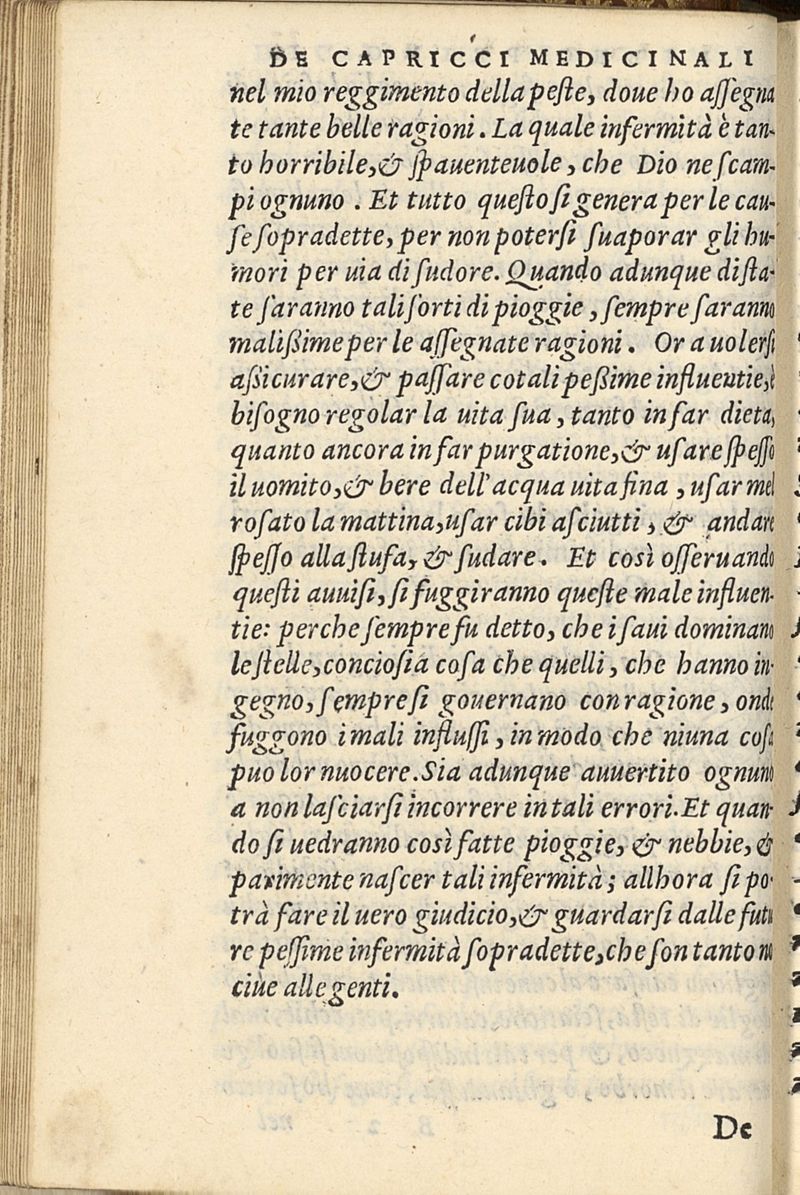 DE CAPRICCI MEDICINALI
nel mio reggimento della peſte, doue ho aſſegna
te tante belle ragioni. La quale infermità è tan-
to horribile, & ſpauenteuole, che Dio ne ſcam-
pi ognuno. Et tutto queſto ſi genera per le cau-
ſe ſopradette, per non poterſi ſuaporar gli hu-
mori per uia di ſudore. Quando adunque diſta-
te ſaranno tali ſorti di pioggie, ſempre ſaranno
malißime per le aſſegnate ragioni. Or a uolerſi
aßicurare, & paſſare cotali peßime influentie, è
biſogno regolar la uita ſua, tanto in far dieta,
quanto ancora in far purgatione, & uſare ſpeſſo
il uomito, & bere dell'acqua uita fina, uſar mel
roſato la mattina, uſar cibi aſciutti, & andare
ſpeſſo alla ſtufa, & ſudare. Et così oſſeruando
queſti auuiſi, ſi fuggiranno queſte male influen-
tie: perche ſempre fu detto, che i ſaui dominano
le ſtelle, concioſia coſa che quelli, che hanno in-
gegno, ſempre ſi gouernano con ragione, onde
fuggono i mali influſſi, in modo che niuna coſa
puo lor nuocere. Sia adunque auuertito ognuno
a non laſciarſi incorrere in tali errori. Et quan-
do ſi uedranno così fatte pioggie, & nebbie, &
parimente naſcer tali infermità; allhora ſi po-
trà fare il uero giudicio, & guardarſi dalle futu
re peſſime infermità ſopradette, che ſon tanto no
ciue alle genti.
De